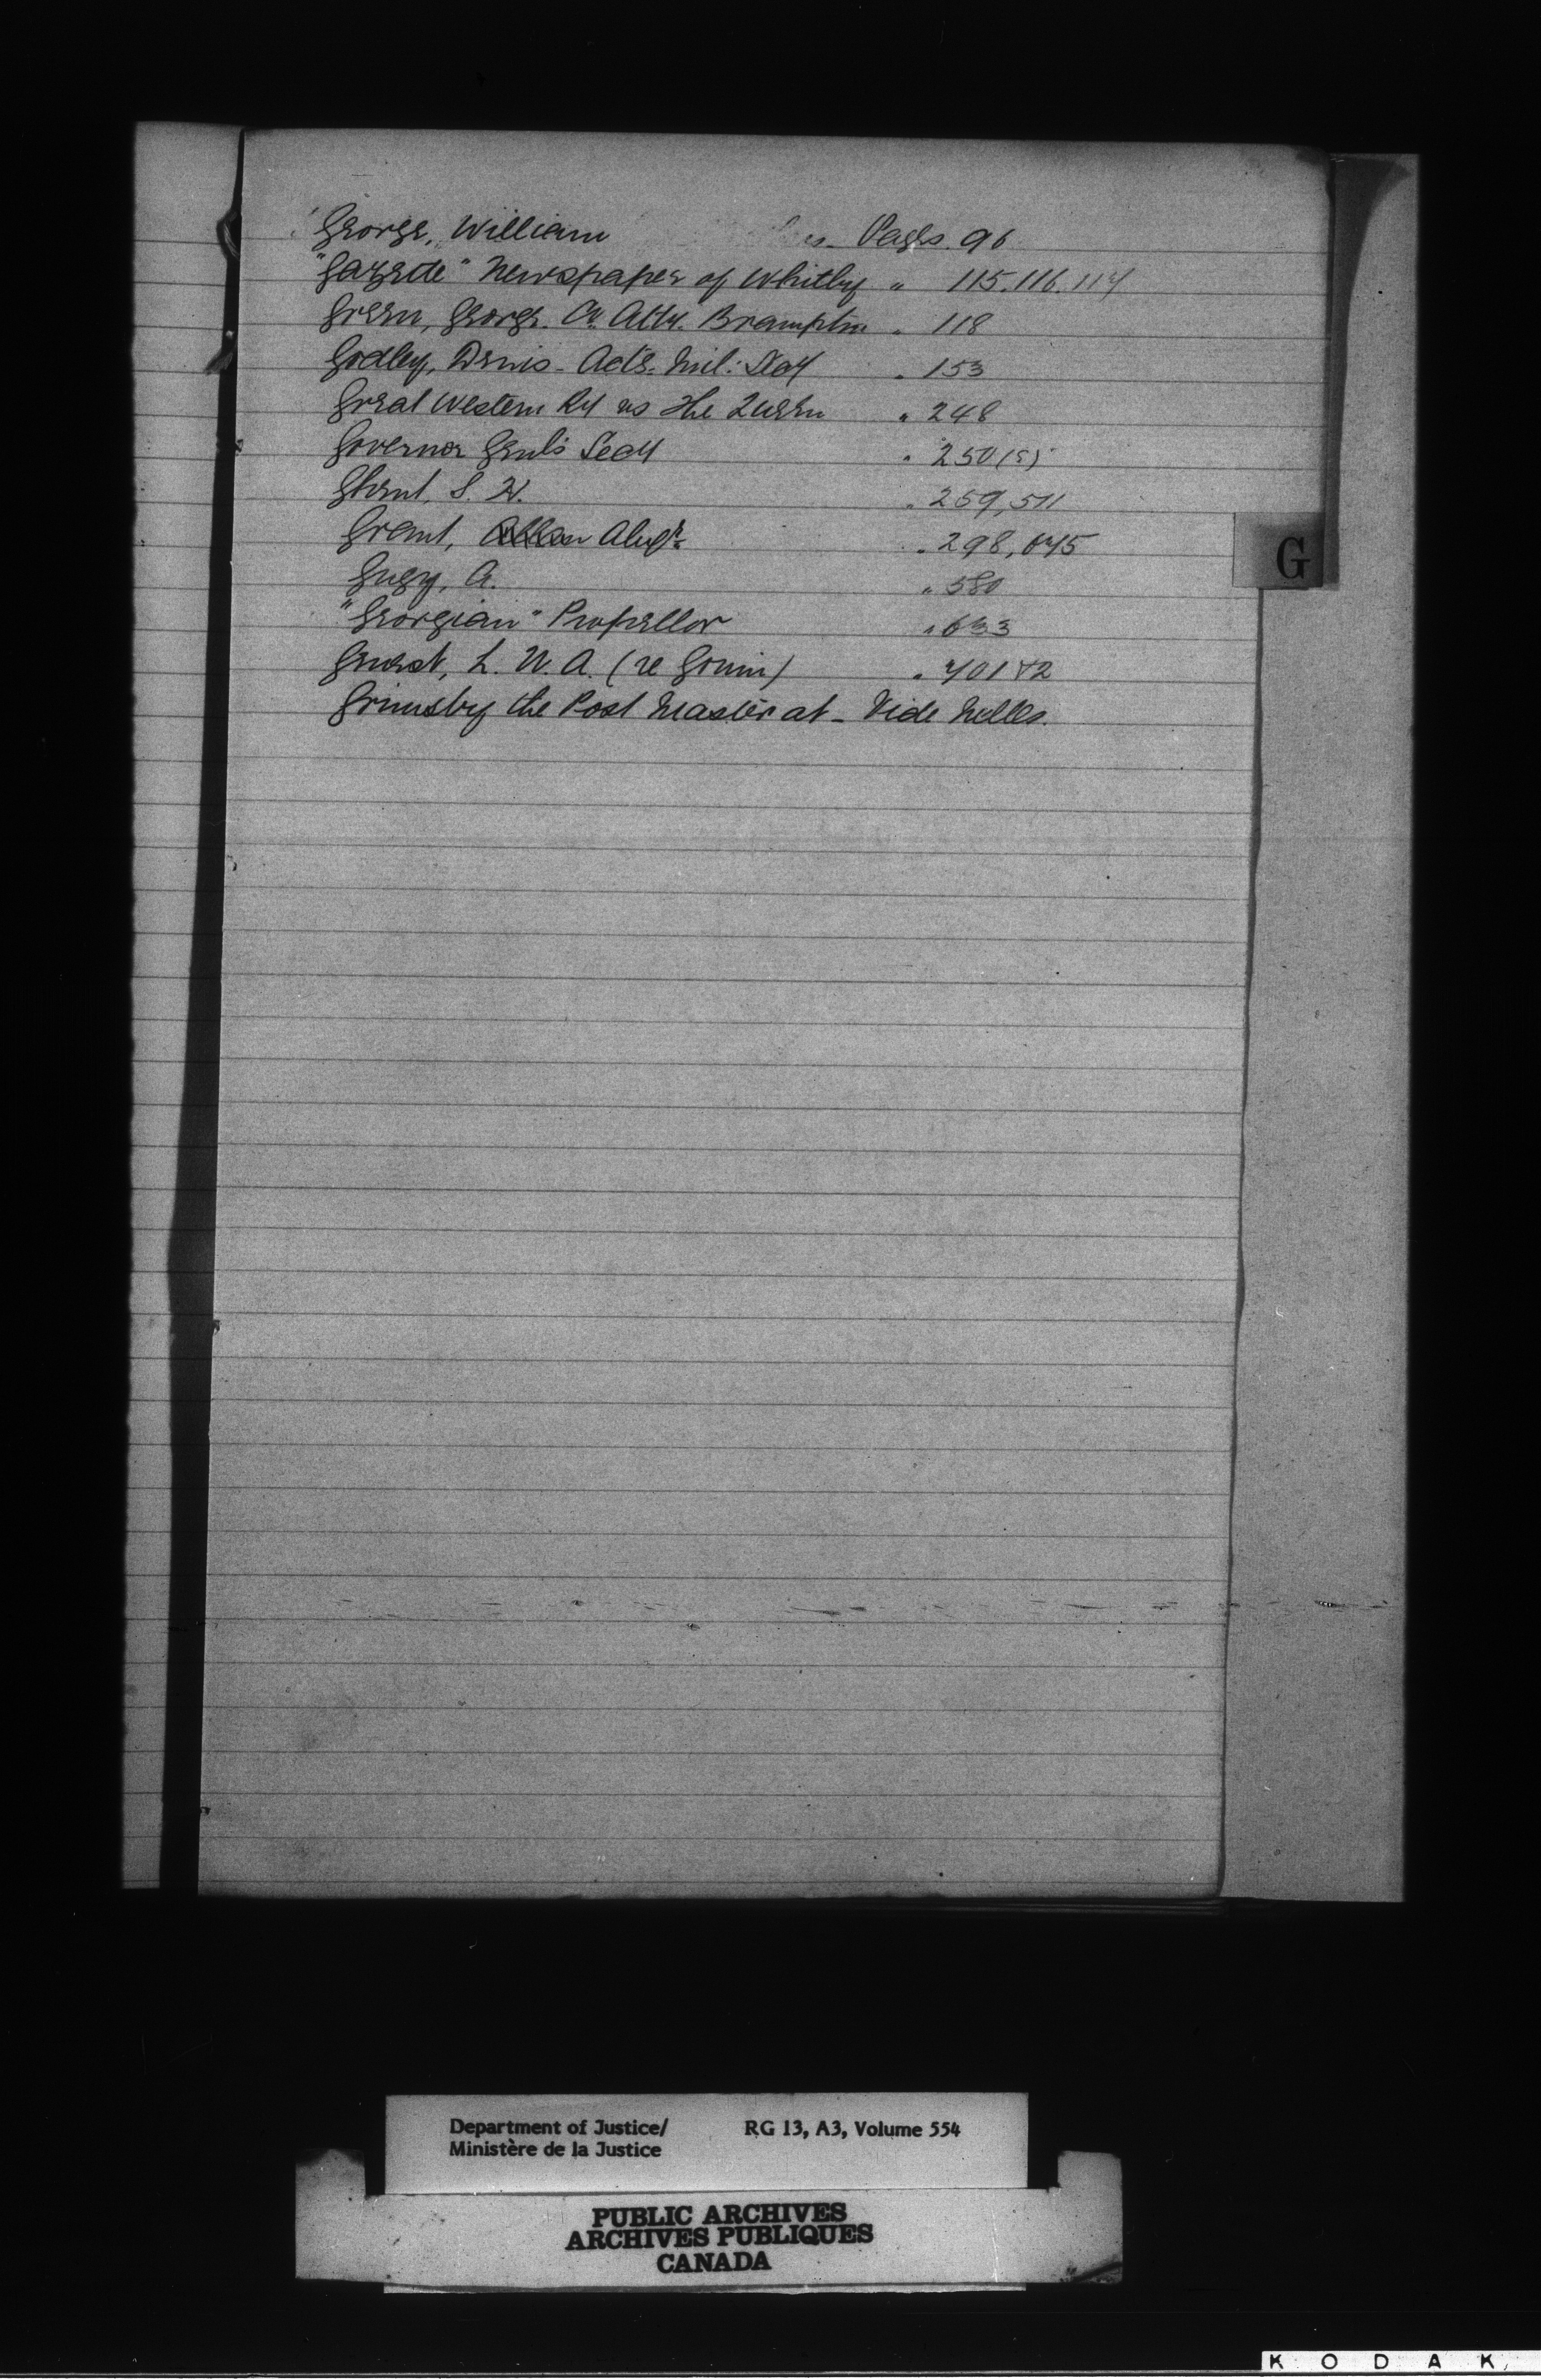 George, William Pages. 96
"Gazette" Newspaper of Whitby " 115.116.117
Green, George. Cy. Atty. Brampton " 118
Godley, Denis - Actg. Mil: Secy " 153
Great Western Ry vs The Queen " 248
Governor Genl's Secy " 250 (5)
Ghent, S. H. " 259, 511
Grant, Allan Alexr " 298, 675
Gugy, A. " 580
"Georgian" Propellor " 633
Guest, L. W. A. (re Gouin) " 701 & 2
Grimsby the Post Master at - Vide Nelles.
G
Department of Justice/ RG 13, A3, Volume 554
Ministère de la Justice
PUBLIC ARCHIVES
ARCHIVES PUBLIQUES
CANADA
K O D A K